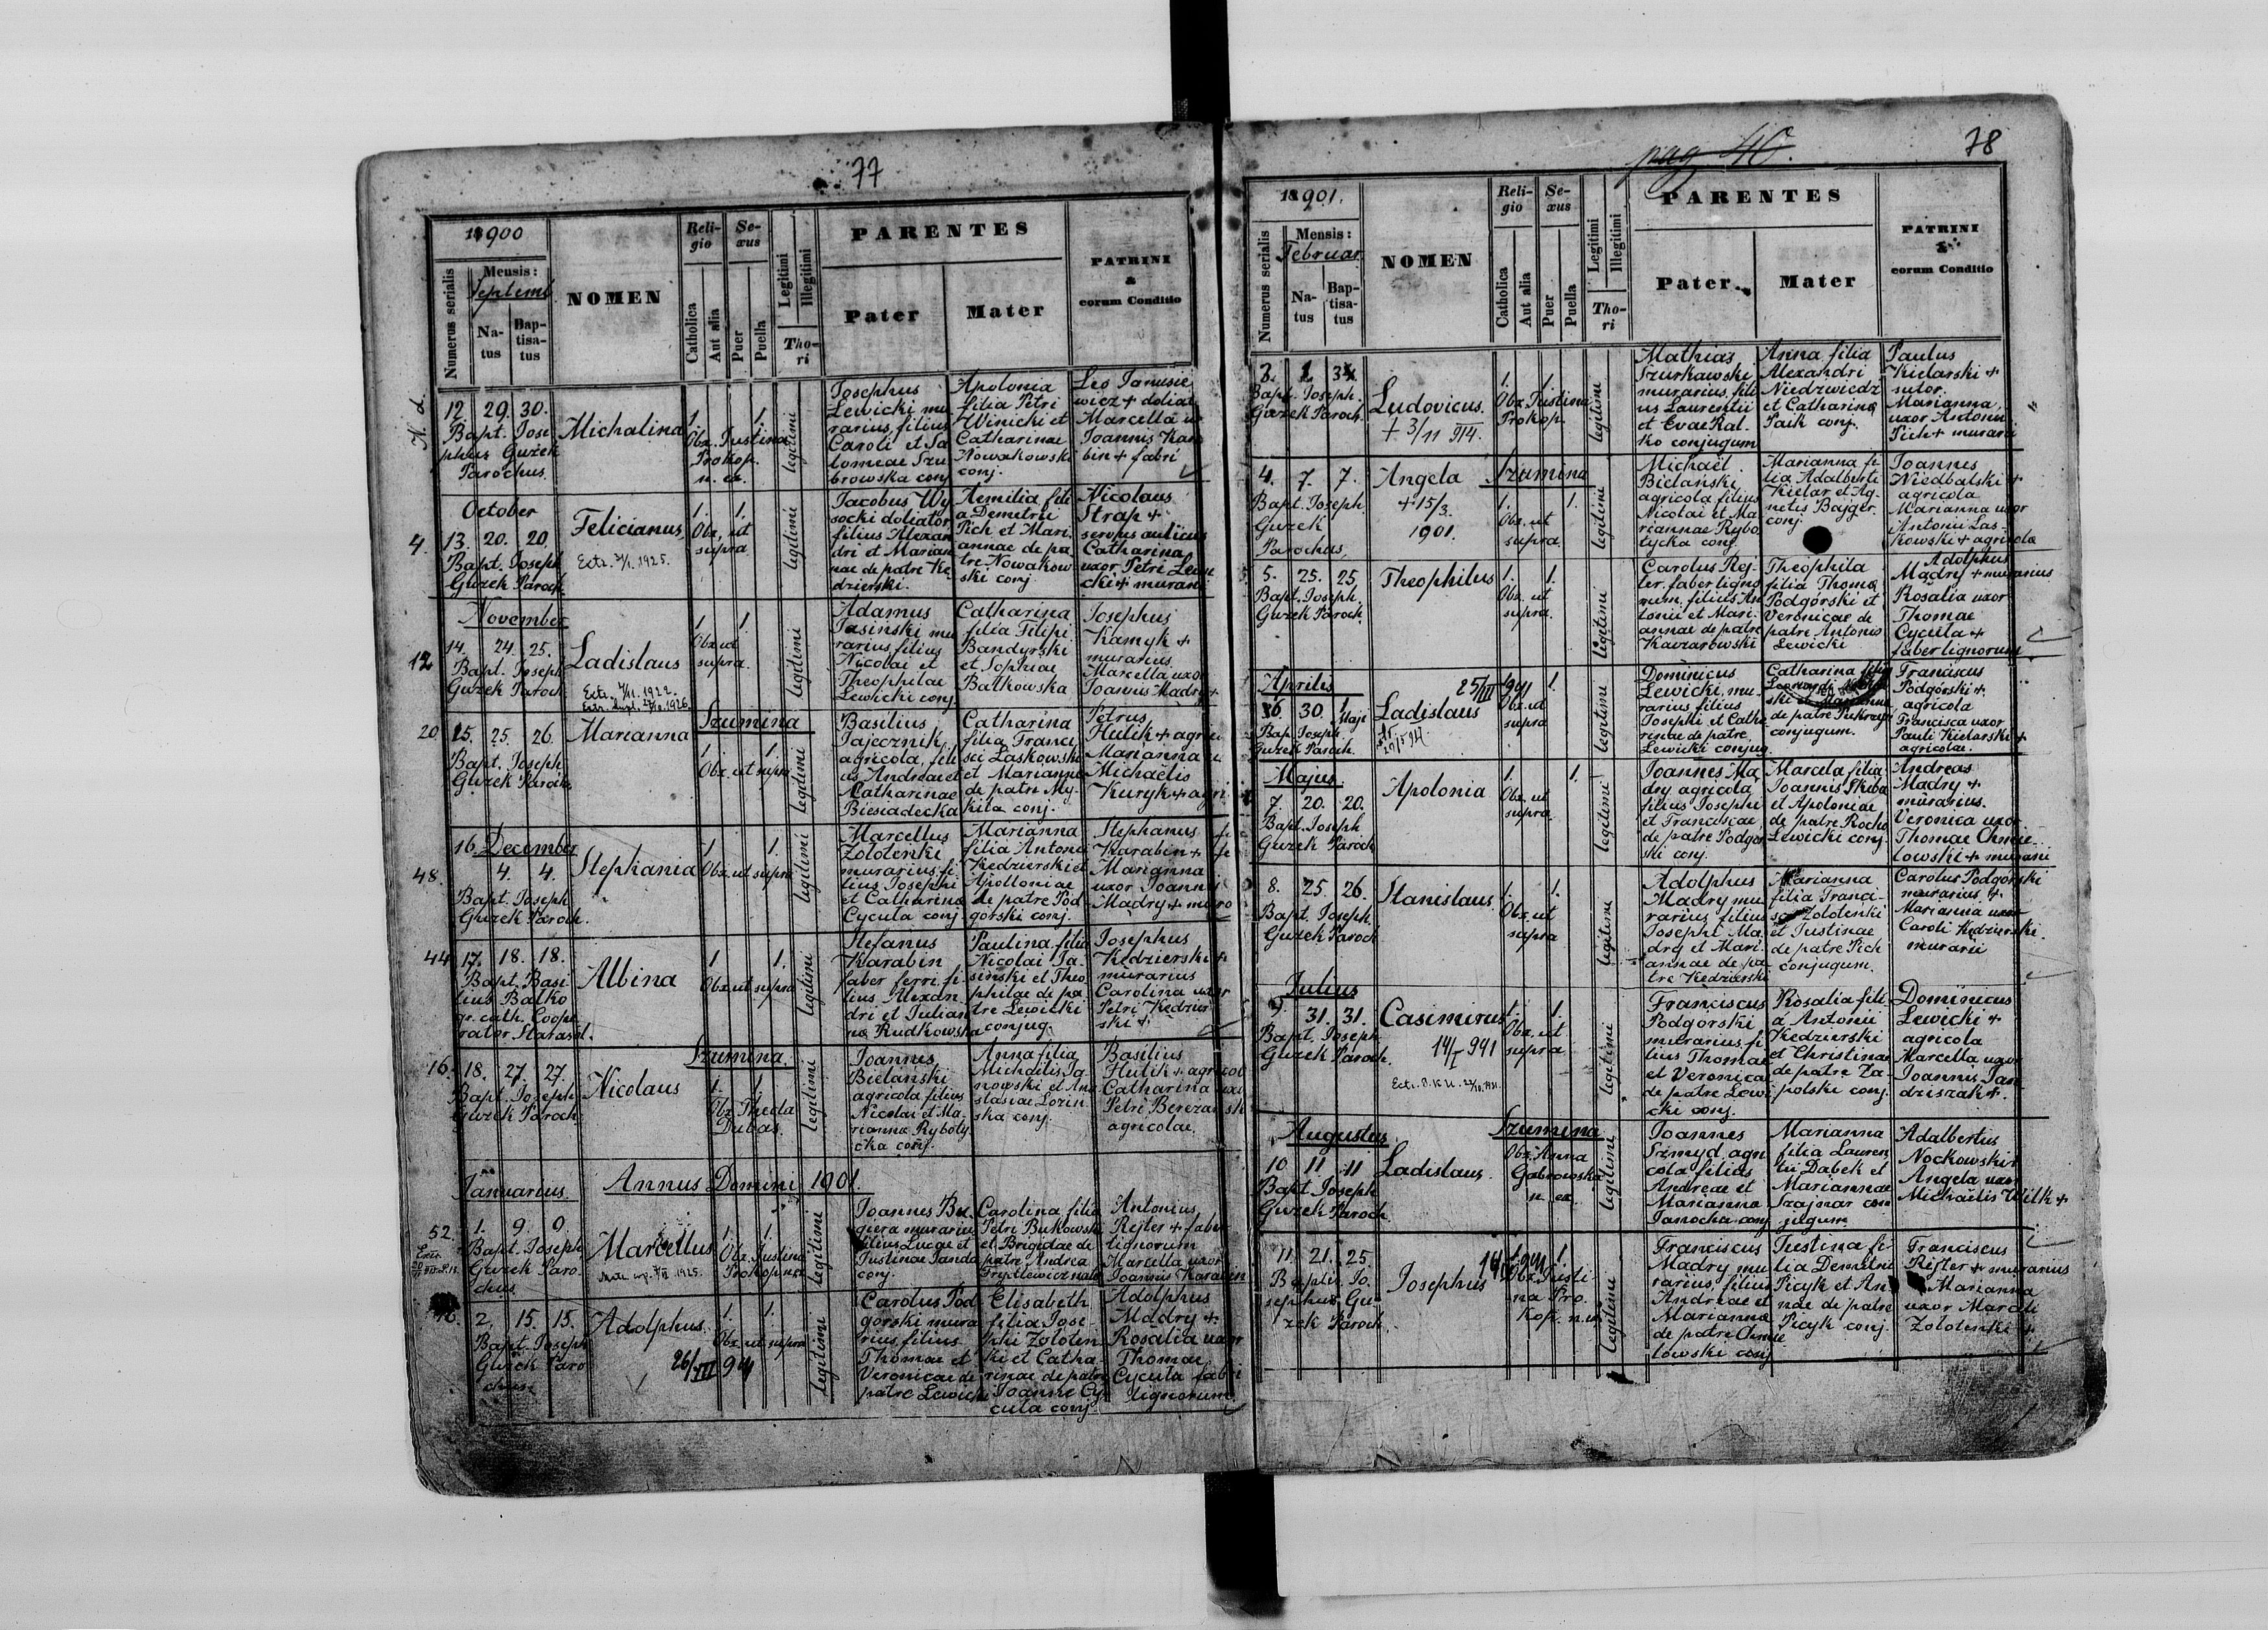 77
1900
Numerus serialis
Mensis:
Septemb
Natus
Baptisatus
NOMEN
Religio
Catholica
Aut alia
Sexus
Puer
Puella
Legitimi
Illegitimi
Thori
PARENTES
Pater
Mater
PATRINI
&
eorum Conditio
N. d.
12. 29. 30.
Bapt. Jose
phus Guzek
Parochus
Michalina
1. 1.
Obx. Justina
Prokop.
n. ex.
legitimi
Josephus
Lewicki mu
rarius, filius
Caroli et Sa
lomeae Szu
browska conj
Apolonia
filia Petri
Winicki et
Catharinae
Nowakowski
conj.
Leo Janusie
wicz + doliat
Marcella ux
Joannis Kara
bin + fabri
October
4. 13. 20. 20.
Bapt. Joseph
Guzek Paroch
Felicianus
Extr. 1925.
1. 1.
Obx. ut
supra
legitimi
Jacobus Wy
socki doliator
filius Alexan
dri et Marian
nae de patre Ke
dzierski.
Aemilia fili
a Demetrii
Pich et Mari
annae de pa
tre Nowakow
ski conj
Nicolaus
Strap +
servus aulicus
Catharina
uxor Petri Lewi
cki + murarii
November
12 14. 24. 25.
Bapt. Joseph
Guzek Paroch
Ladislaus
1. 1.
Obx ut
supra.
legitimi
Adamus
Jasinski mu
rarius, filius
Nicolai et
Theophilae
Lewicki conj
Catharina
filia Filipi
Bandyrski
et Sophiae
Batkowska
Josephus
Kamyk +
murarius
Marcella uxor
Joannis Madry +
20. 15. 25. 26.
Bapt. Joseph
Guzek Paroch
Marianna
Szumina
1. 1.
Obx. ut supra
legitimi
Basilius
Jajecznik
agricola, fili
us Andreae et
Catharinae
Biesiadecka
Catharina
filia Franci
sci Laskowski
et Marianna
de patre My
kita conj.
Petrus
Hulik + agri
Marianna
Michaelis
Kuryk + agri
16. December
48. 4. 4.
Bapt. Joseph
Guzek Paroch.
Stephania
1. 1.
Obx. ut supra
legitimi
Marcellus
Zolotenki
murarius, fi
lius Josephi
et Catharina
Cycula conj
Marianna
filia Antonii
Kedzierski et
Apolloniae
de patre Pod
górski conj.
Stephanus
Karabin +
Marianna
uxor Joannis
Madry + muro
44 17. 18. 18.
Bapt. Basi
lius Batko
gr. cath. Coope
rator Starasol.
Albina
1. 1.
Obx. ut supra
legitimi
Stefanus
Karabin
faber ferri, fi
lius Alexdn
dri et Julian
na Rudkowska
Paulina filia
Nicolai Ja
sinski et Theo
philae de pa
tre Lewicki
conjug.
Josephus
Kedzierski +
murarius
Carolina uxor
Petri Kedzier
ski +
16. 18. 27. 27.
Bapt. Joseph
Guzek Paroch
Nicolaus
Szumina.
1. 1.
Obx. Theda
Dubas.
legitimi
Joannes
Bielański
agricola filius
Nicolai et Ma
rianna Ryboty
cka conj.
Anna filia
Michaelis Ja
nowski et Ana
stasiae Lozin
ska conj.
Basilius
Hulik + agricol
Catharina uxo
Petri Berezan sk
agricolae.
Januarius. Annus Domini 1901.
52. 1. 9. 9.
Bapt. Joseph
Guzek Paro
chus
Marcellus
1. 1.
Obx. Justina
Prokop n ex
legitimi
Joannes Bu
giera murarius
filius Lucae et
Justinae Janda
conj.
Carolina filia
Petri Bukowski
et Brigidae de
patre Andrea
Antonius
Rejter + faber
lignorum
Marcella uxor
Joannis Karabin
2. 15. 15.
Bapt. Joseph
Guzek Paro
chus
Adolphus
26/III 941
1. 1.
Obx. ut supra
legitimi
Carolus Pod
górski mura
rius, filius
Thomae et
Veronicae de
patre Lewicki
Elisabeth
filia Jose
phi Zoloten
ki et Catha
rinae de patre
Joanne Cy
cula conj.
Adolphus
Madry +
Rosalia uxor
Thomae
Cycula fabri
lignorum
pag 40.
78
1901.
Numerus serialis
Mensis:
Februar
Natus
Baptisatus
NOMEN
Religio
Catholica
Aut alia
Sexus
Puer
Puella
Legitimi
Illegitimi
Thori
PARENTES
Pater
Mater
PATRINI
&
eorum Conditio
3. 1. 3.
Bapt. Joseph.
Guzek Paroch.
Ludovicus.
+ 3/11 914.
1. 1.
Obx. Justina
Prokop.
legitimi
Mathias
Szurkowski
murarius, fili
us Laurentii
et Evae Kal
ko conjugum
Anna filia
Alexandri
Niedzwiedz
et Catharina
Paik conj.
Paulus
Kielarski +
sutor.
Marianna
uxor Antonii
Pich + murarii
4. 7. 7.
Bapt. Joseph
Guzek
Parochus.
Angela
+ 15/3.
1901.
Szumina
1. 1.
Obx. ut
supra.
legitimi
Michaël
Bielański
agricola filius
Nicolai et Ma
riannae Rybo
tycka conj
Marianna fi
lia Adalberti
Kielar et Ag-
netis Bajger.
conj.
Joannes
Niedbalski +
agricola
Marianna uxor
Antonii Las-
kowski + agricola
5. 25. 25.
Bapt. Joseph
Guzek Paroch.
Theophilus
1. 1.
Obx. ut
supra.
legitimi
Carolus Rej-
ter faber ligno
rum, filius An
tonii et Mari-
annae de patre
Kaczarowski
Theophila
filia Thoma
Podgórski et
Veronicae de
patre Antonio
Lewicki
Adolphus
Madry + murarius
Rosalia uxor
Thomae
Cycula +
faber lignorum
Aprilis
6. 30. 1. Maji
Bap. Joseph
Guzek Paroch.
Ladislaus
25/III 941
1.
Obx. ut
supra
legitimi
Dominicus
Lewicki, mu-
rarius filius
Josephi et Catha
rinae de patre
Lewicki conjug
Catharina filia
de patre
conjugum.
Franciscus
Podgórski +
agricola
Francisca uxor
Pauli Kielarski +
agricolae.
Majus.
7. 20. 20.
Bapt. Joseph
Guzek Paroch
Apolonia
1. 1.
Obx. ut
supra.
legitimi
Joannes Ma
dry agricola
filius Josephi
et Franciscae
de patre Podgor
ski conj.
Marcela filia
Joannis Skiba
et Apoloniae
de patre Rocho
Lewicki conj
Andreas
Madry +
murarius.
Veronica uxor
Thomae Chmie
lowski + murarii
8. 25. 26.
Bapt. Joseph
Guzek Paroch
Stanislaus.
1. 1.
Obx. ut
supra
legitimi
Adolphus
Madry mu
rarius, filius
Josephi Ma
dry et Mari-
annae de pa
tre Kedzierski
Marianna
filia Franci-
sci Zolotenki
et Justinae
de patre Pich
conjugum.
Carolus Podgorski
murarius +
Marianna uxor
Caroli Kedzierski.
murarii
Julius
9. 31. 31.
Bapt. Joseph
Guzek Paroch.
Casimirus
14/I 941
1. 1.
Obx. ut
supra
legitimi
Franciscus
Podgorski
murarius, fi
lius Thomae
et Veronicae
de patre Lewi
cki conj.
Rosalia fili
a Antonii
Kedzierski
et Christinae
de patre Za
polski conj.
Dominicus
Lewicki +
agricola
Marcella uxor
Joannis Jan
dziszak +.
Augustus
10. 11. 11
Bapt Joseph
Guzek Paroch
Ladislaus.
Szumina
Obx. Anna
Gabrowska
n. ex.
legitimi
Joannes
Szmyd, agri
cola filius
Andreae et
Marianna
Janocha conj
Marianna
filia Lauren
tii Dabek et
Mariannae
Szajnar con
jugum
Adalbertus
Nockowski +
Angela uxor
Michaelis Wilk +
11. 21. 25.
Baptis. Jo.
sephus Gu-
zek Paroch.
Josephus
1. 1.
Obx. Justi
na Pro.
kop. n. ex
legitimi
Franciscus
Madry mu
rarius, filius
Andreae et
Marianna
de patre Chmie
lowski conj
Justina fi
lia Demetrii
Picyk et An
nae de patre
Picyk conj.
Franciscus
Rejter + murarius
Marianna
uxor Marceli
Zolotenki +